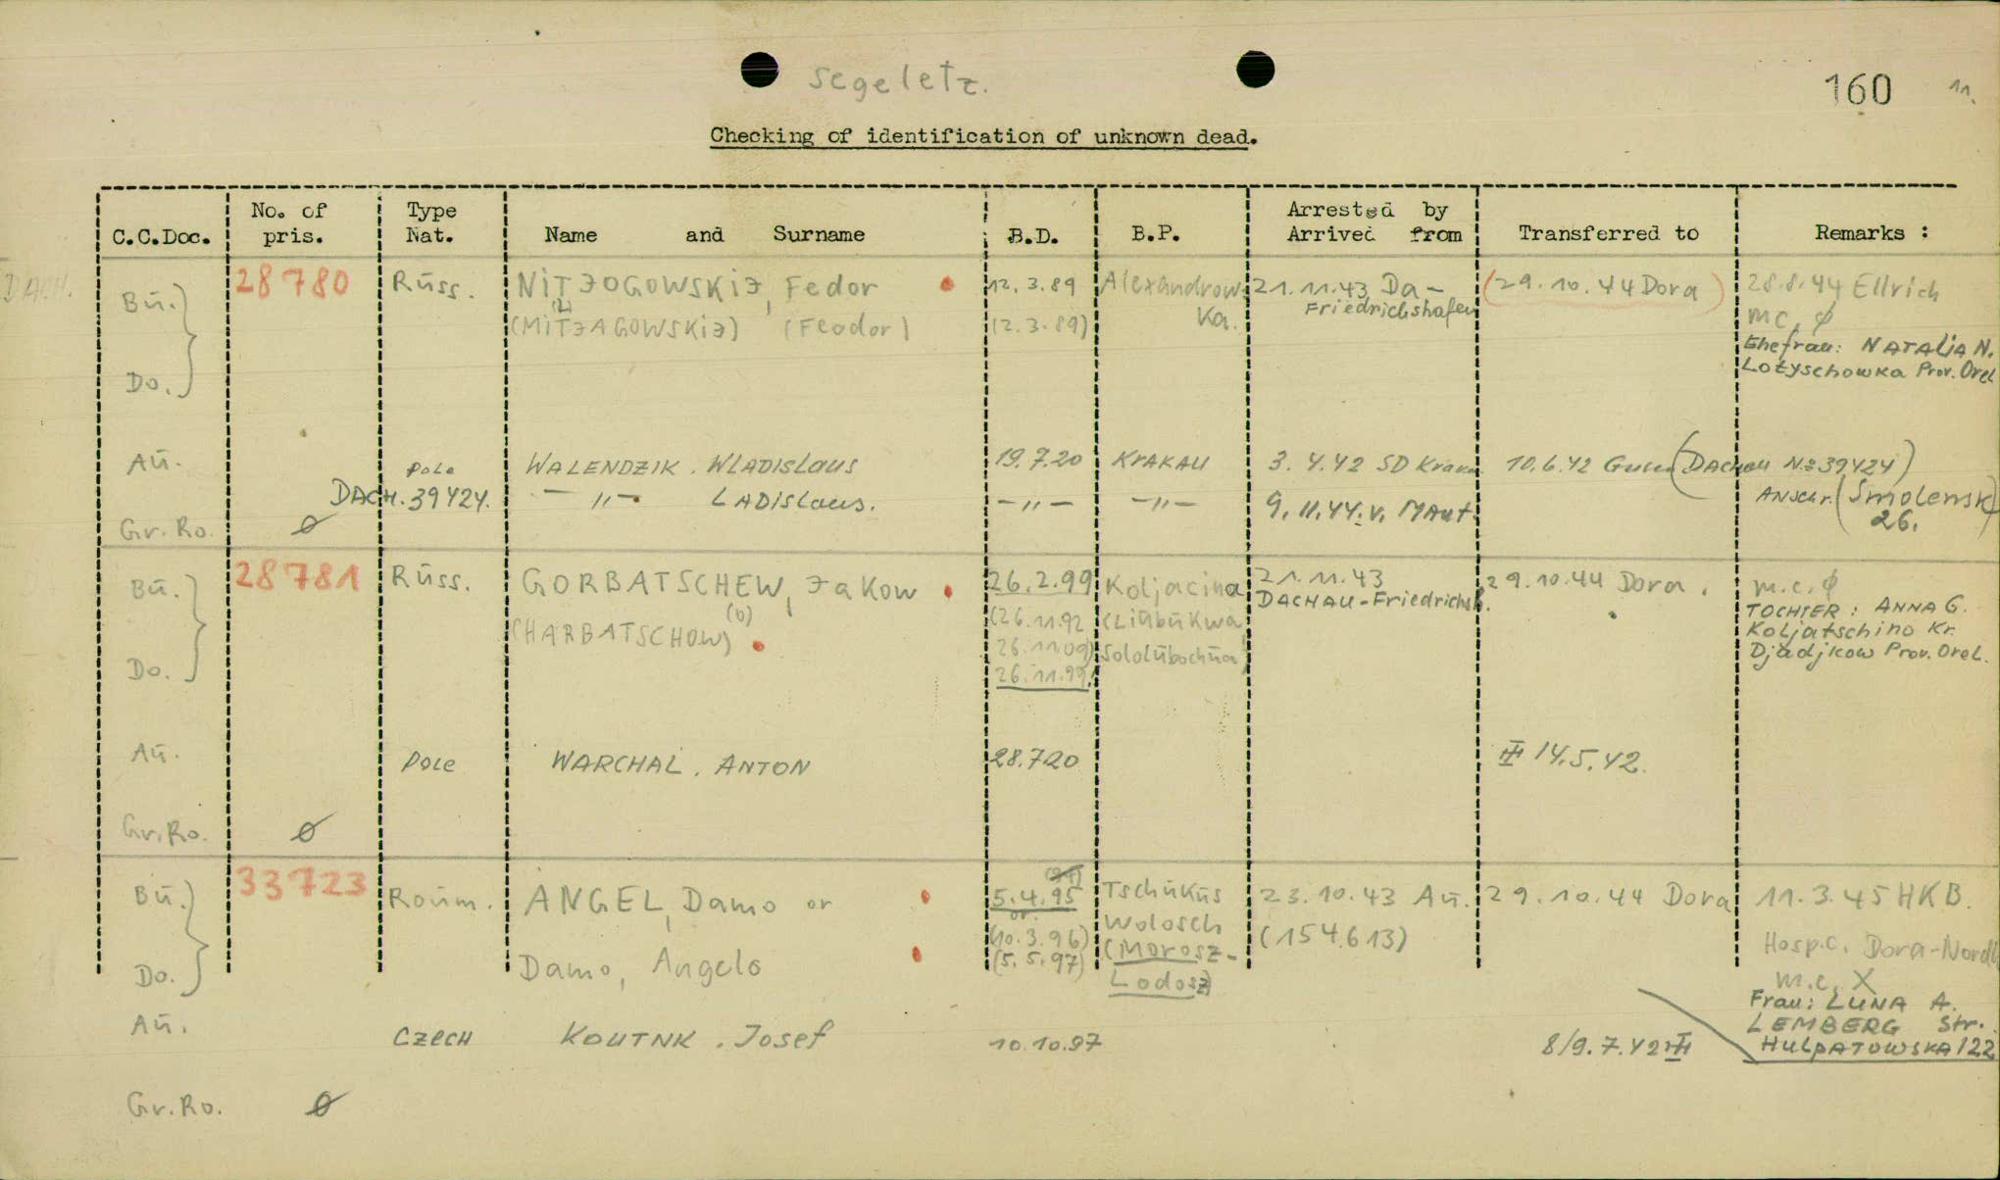 segeletz.
160 11.
Checking of identification of unknown dead.
C.C.Doc. No. of pris. Type Nat. Name and Surname B.D. B.P. Arrested by Arrived from Transferred to Remarks :
DACH.
Bü. 28780 Russ. NITZOGOWSKIJ, Fedor 12.3.89 Alexandrow- 21.11.43 Da- (29.10.44 Dora) 28.8.44 Ellrich
(MITZAGOWSKIJ) (Feodor) (2.3.89) Ka. Friedrichshafen mc. ø
Ehefrau: NATALIA N.
Do. Lotyschowka Prov. Orel
Au. Pole WALENDZIK. WLADISLAUS 19.7.20 KRAKAU 3.4.42 SD Krakau 10.6.42 Gusen (DACHAU No 39424)
DACH. 39424. —"— LADISLAUS. —"— —"— 9.11.44. v. MAUT. ANSCHR. (Smolensk
26.
Gr.Ro. ø
Bü. 28781 Russ. GORBATSCHEW, Jakow 26.2.99 Koljacina 21.11.43 29.10.44 Dora. m.c. ø
DACHAU-Friedrichsh. TOCHTER: ANNA G.
(HARBATSCHOW) (o) (26.11.92 (Liubükwa Koljatschino Kr.
26.11.09) Sololübochüa) Djadjkow Prov. Orel.
Do. 26.11.99.
Au. Pole WARCHAL. ANTON 28.7.20 III 14.5.42.
Gr.Ro. ø
Bü. 33723 Roum. ANGEL, Damo or 5.4.95 Tschukus 23.10.43 Au. 29.10.44 Dora 11.3.45 HKB.
or Wolosch
(10.3.96) (Morosz- (154613) Hosp.c. Dora-Nordh
Do. Damo, Angelo (5.5.97) Lodosz) m.c. X
Frau: LUNA A.
LEMBERG Str.
Au. Czech KOUTNK. Josef 10.10.97 8/9.7.42 III HULPATOWSKA 122
Gr.Ro. ø